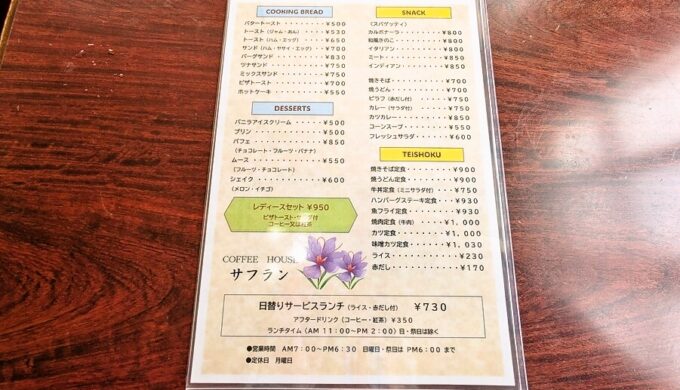 COOKING BREAD
バタートースト ¥500
トースト(ジャム・あん) ¥530
トースト(ハム・エッグ) ¥650
サンド(ハム・ヤサイ・エッグ) ¥700
バーグサンド ¥830
ツナサンド ¥750
ミックスサンド ¥750
ピザトースト ¥700
ホットケーキ ¥550
DESSERTS
バニラアイスクリーム ¥500
プリン ¥500
パフェ ¥850
(チョコレート・フルーツ・バナナ)
ムース ¥550
(フルーツ・チョコレート)
シェイク ¥600
(メロン・イチゴ)
レディースセット ¥950
ピザトースト・サラダ付
コーヒー又は紅茶
COFFEE HOUSE
サフラン
SNACK
(スパゲッティ)
カルボナーラ ¥800
和風きのこ ¥800
イタリアン ¥800
ミート ¥850
インディアン ¥850
焼きそば ¥700
焼うどん ¥700
ピラフ(赤だし付) ¥750
カレー(サラダ付) ¥750
カツカレー ¥850
コーンスープ ¥550
フレッシュサラダ ¥600
TEISHOKU
焼きそば定食 ¥900
焼うどん定食 ¥900
牛丼定食(ミニサラダ付) ¥750
ハンバーグステーキ定食 ¥930
魚フライ定食 ¥930
焼肉定食(牛肉) ¥1,030
カツ定食 ¥1,000
味噌カツ定食 ¥1,030
ライス ¥230
赤だし ¥170
日替りサービスランチ(ライス・赤だし付) ¥730
アフタードリンク(コーヒー・紅茶)¥350
ランチタイム(AM 11:00~PM 2:00)日・祭日は除く
●営業時間 AM7:00~PM6:30 日曜日・祭日は PM6:00 まで
●定休日 月曜日